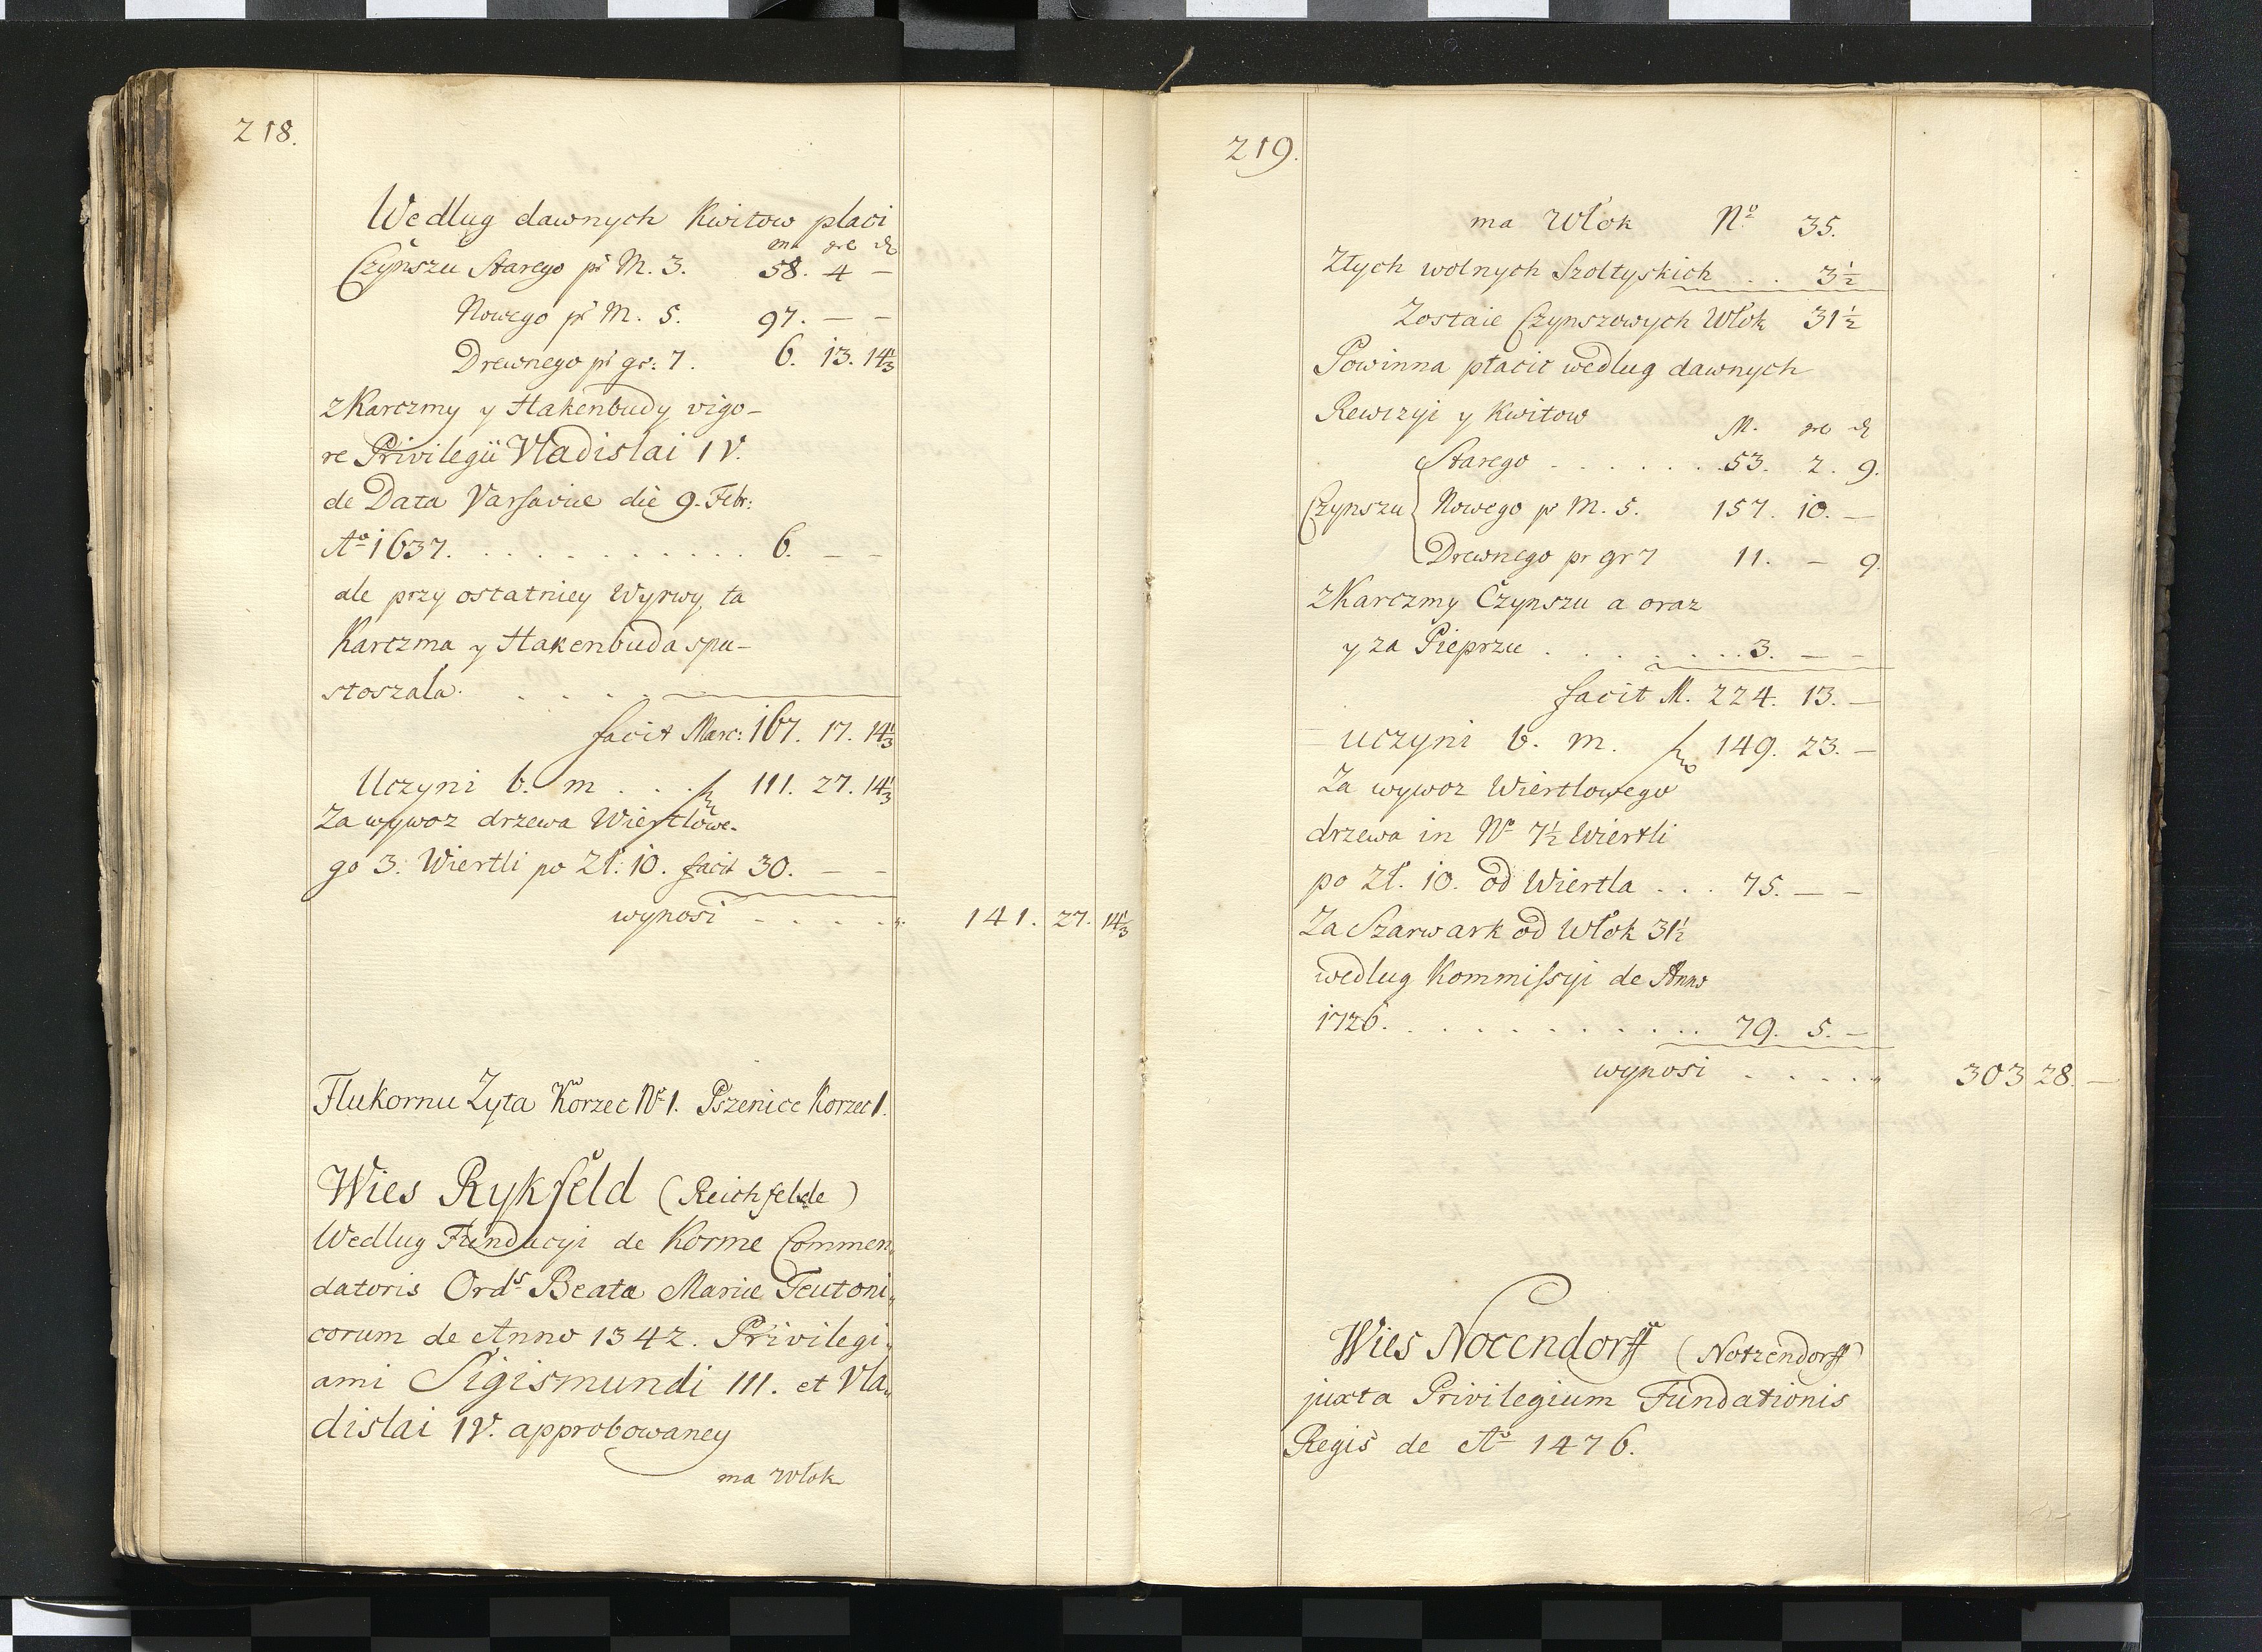 218.
Wedlug dawnych Kwitow placi
ma gre d
Czynszu Starego pr M. 3. 58. 4 –
Nowego pr M. 5. 97. – –
Drewnego pr gr: 7. 6. 13. 14⅓
z Karczmy y Hakenbudy vigo-
re Privilegii Vladislai IV.
de Data Varsaviæ die 9. Febr:
Aº 1637. . . . . . . . . . . 6. – –
ale przy ostatniey Wyrwy ta
Karczma y Hakenbuda spu-
stoszala. . . . .
facit Marc: 167. 17. 14⅓
Uczyni b. m . . . 111. 27. 14⅓
Za wywoz drzewa Wiertlowe-
go 3. Wiertli po Zł: 10. facit 30. – –
wynosi . . . . . 141. 27. 14⅓
Flukornu Zyta Korzec Nº 1. Pszenice Korzec 1.
Wies Rykfeld (Reichfelde)
Wedlug Fundacyi de Korme Commen„
datoris Ordˢ Beata Mariæ Teutoni„
corum de Anno 1342. Privilegi„
ami Sigismundi III. et Vla„
dislai IV. approbowaney
ma Włok
219.
ma Włok Nº 35.
Ztych wolnych Szoltyskich . . 3½
Zostaie Czynszowych Włok 31½
Powinna płacic wedlug dawnych
Rewizyi y Kwitow
M. gre d
Starego . . . . . . . 53. 2. 9.
Czynszu Nowego pr M. 5. 157. 10. –
Drewnego pr gr 7 11. – 9.
z Karczmy Czynszu a oraz
y za Pieprzu . . . . . . . 3. – –
facit M. 224. 13. –
uczyni b. m. 149. 23. –
Za wywoz Wiertlowego
drzewa in Nº 7½ Wiertli
po Zł. 10. od Wiertla . . . 75. – –
Za Szarwark od Włok 31½
wedlug Kommissyi de Anno
1726. . . . . . . . . . . . 79. 5. –
wynosi . . . . . 303 28. –
Wies Nocendorff (Notzendorff)
juxta Privilegium Fundationis
Regis de Aº 1476.